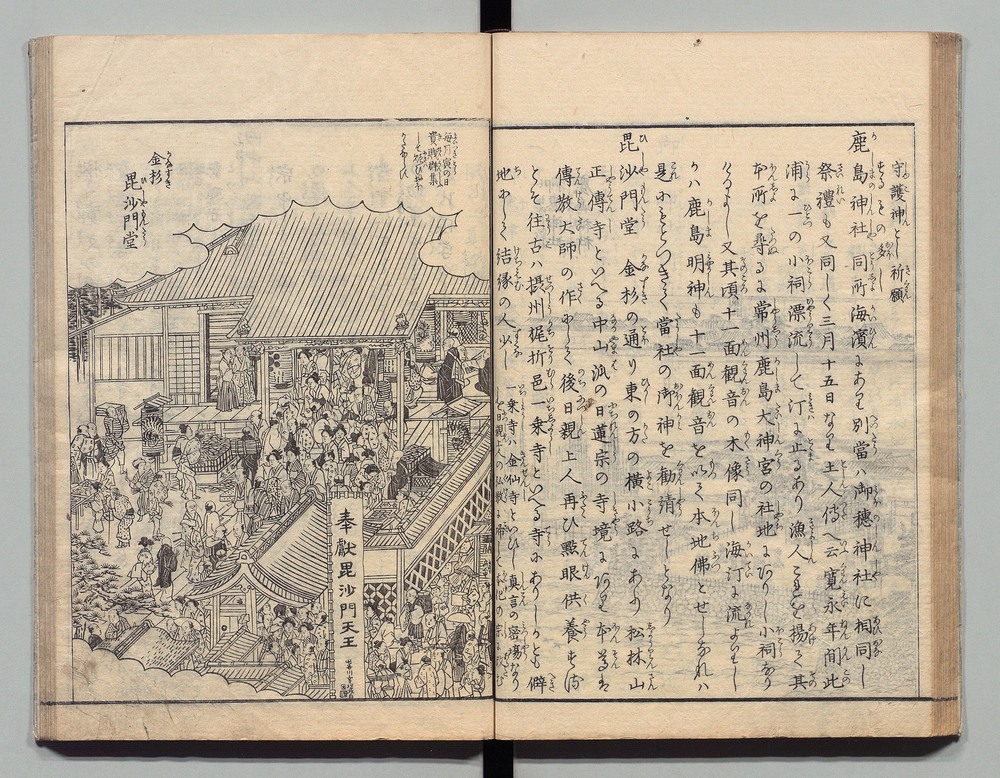 守護神とし祈願
するもの多し
鹿島神社 同所海濱にあり別當ハ御穂神社に相同し
祭禮も又同しく三月十五日なり土人傳へ云寛永年間此
浦に一の小祠漂流して汀に止るあり漁人これを揚て其
本所を尋るに常州鹿島大神宮の社地にありし小祠なり
又其頃十一面観音の木像同し海汀に流よりし
かハ鹿島明神も十一面観音を以て本地佛とせしなれハ
是にもとつきて當社の御神を勧請せしとなり
毘沙門堂 金杉の通り東の方の横小路にあり松林山
正傳寺といへる中山派の日蓮宗の寺境にあり本尊ハ
傳教大師の作にして後日親上人再ひ點眼供養す
とそ往古ハ摂州梶折邑一乗寺といへる寺にありしかとも僻
地にして結縁の人少し
一乗寺ハ金仙寺といひし真言の密場なり
毎月寅の日
貴賤群集
金杉
毘沙門堂
奉獻毘沙門天王